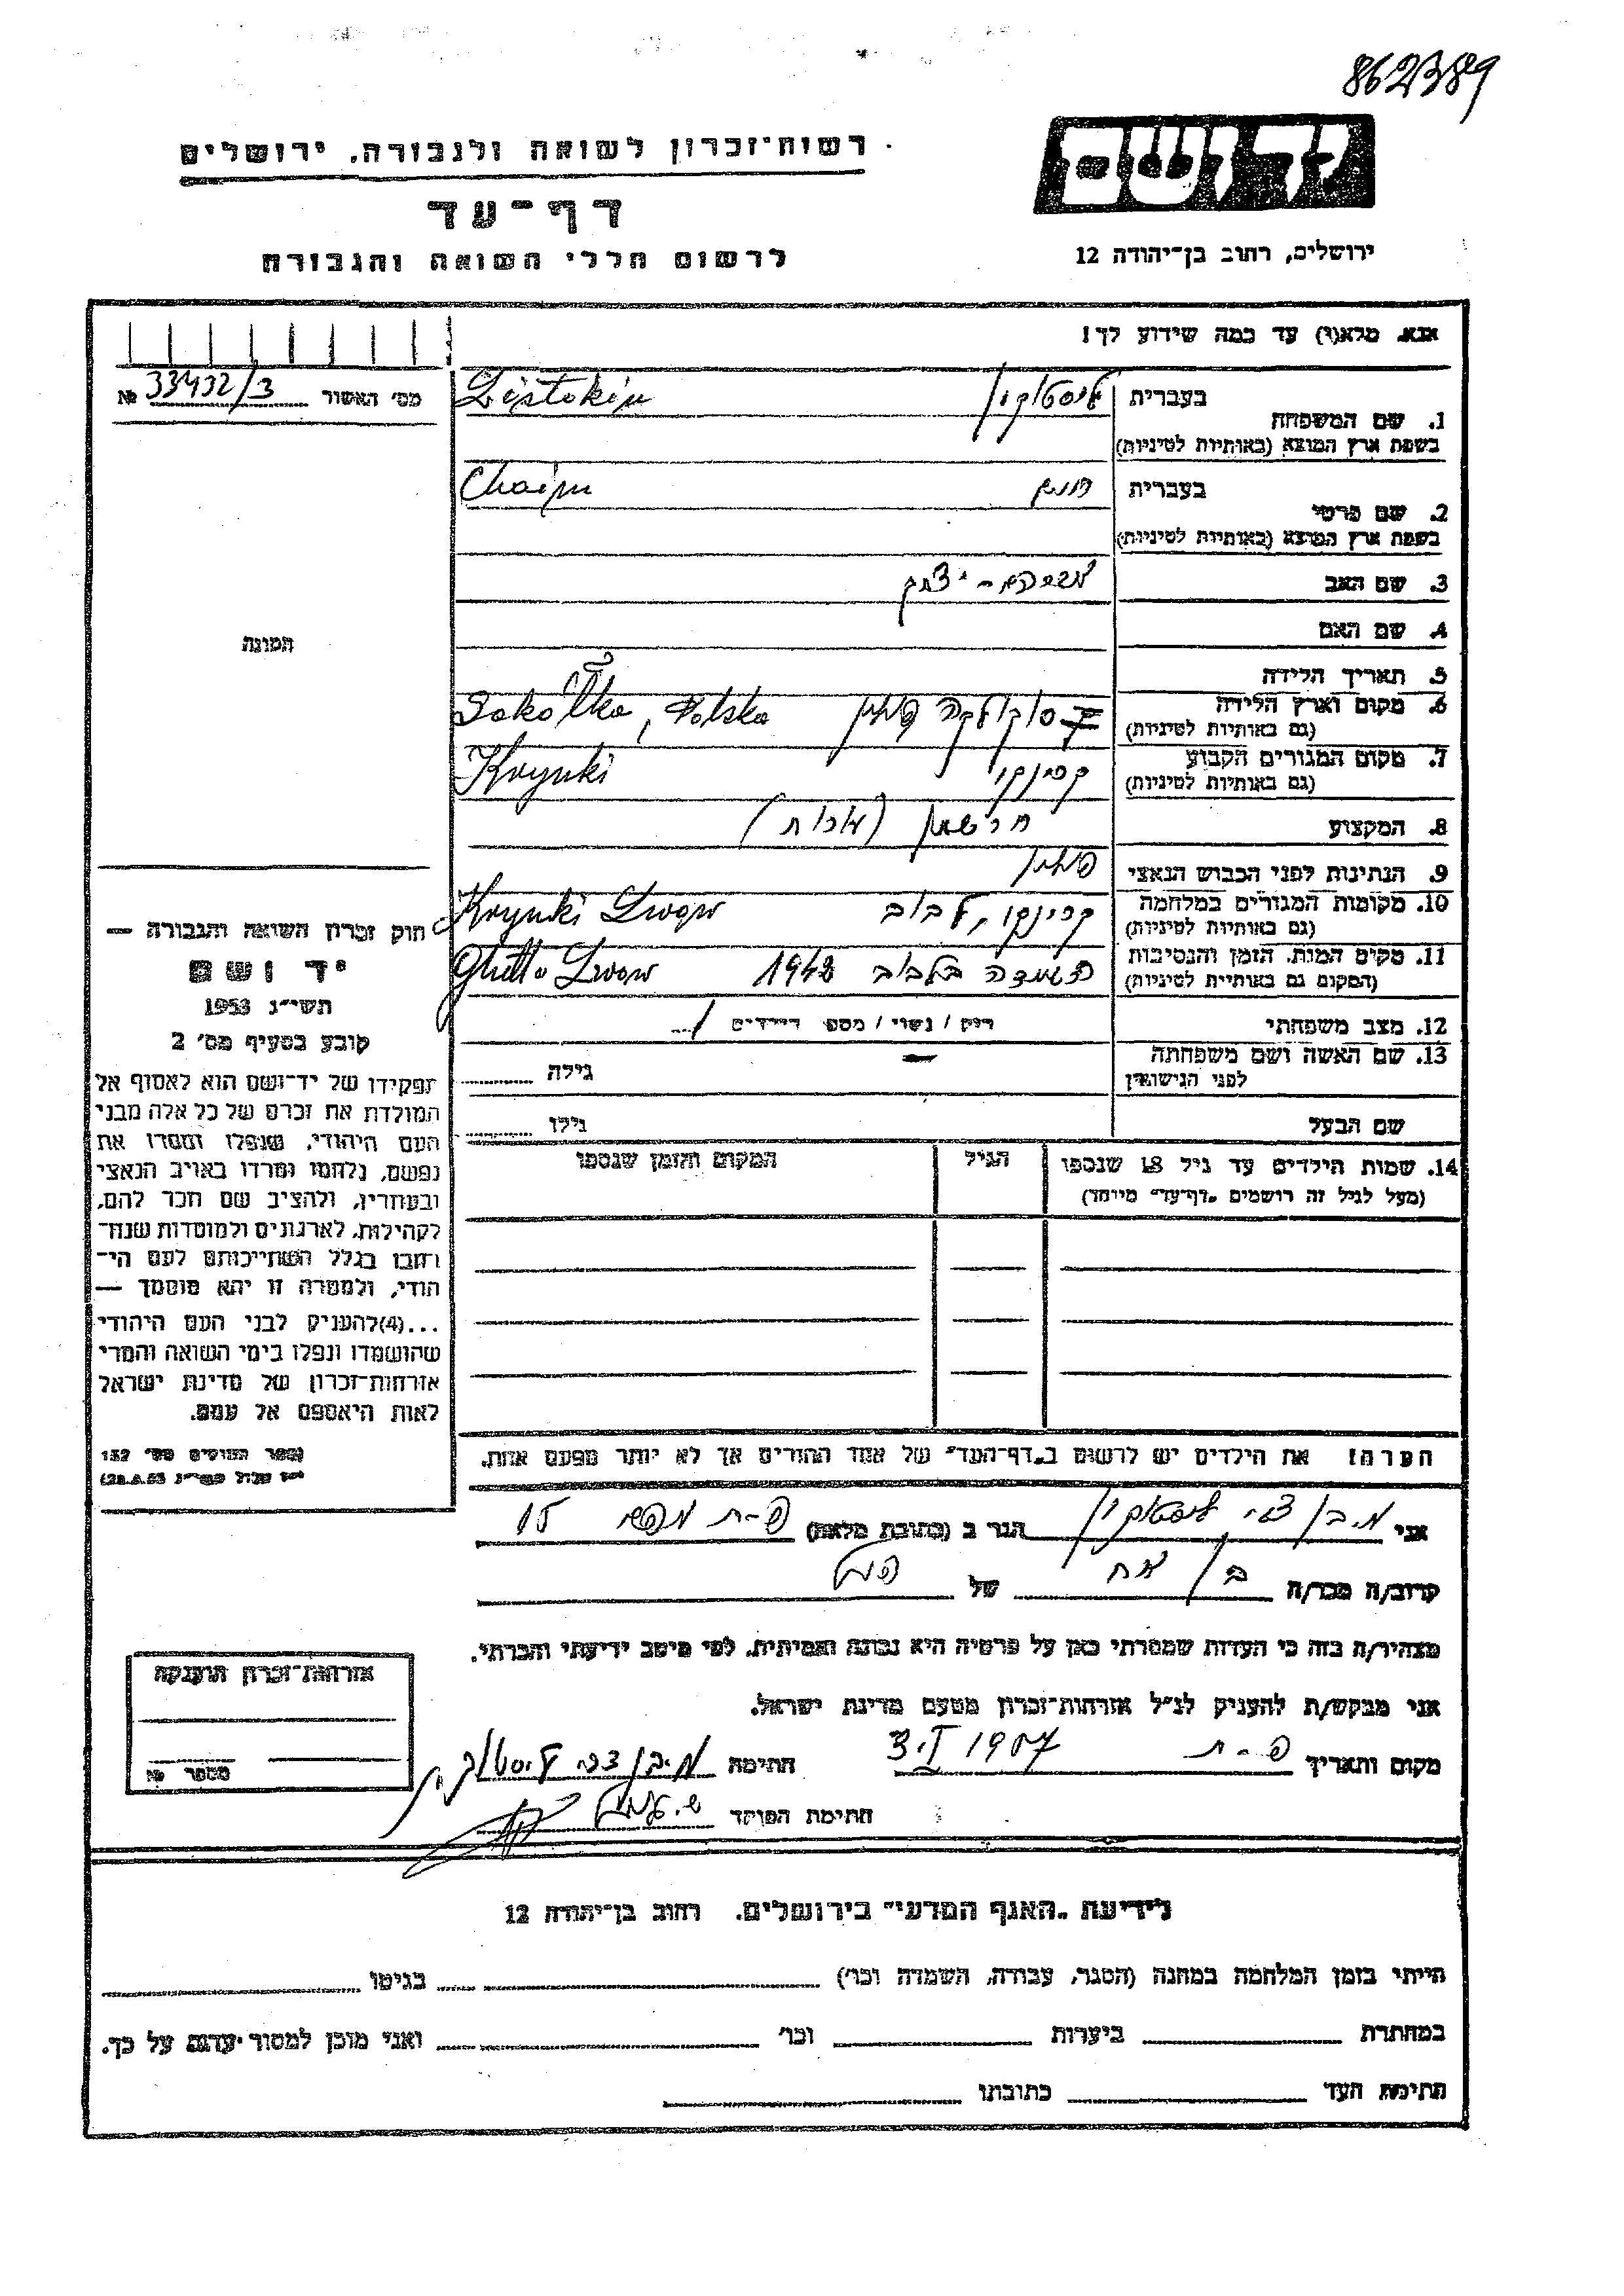 862389
יד ושם
רשות־זכרון לשואה ולגבורה, ירושלים
דף־עד
לרשום חללי השואה והגבורה
ירושלים, רחוב בן־יהודה 12
אנא, מלא(י) עד כמה שידוע לך!
מס׳ האשור 33432/3 №
1. שם המשפחה בעברית ליסטוקין Listokin
בשפת ארץ המוצא (באותיות לטיניות)
2. שם פרטי בעברית חיים Chaim
בשפת ארץ המוצא (באותיות לטיניות)
3. שם האב יצחק
4. שם האם
תמונה
5. תאריך הלידה
6. מקום וארץ הלידה סוקולקה פולין Sokółka, Polska
(גם באותיות לטיניות)
7. מקום המגורים הקבוע קרינקי Krynki
(גם באותיות לטיניות)
8. המקצוע חרשתן
9. הנתינות לפני הכבוש הנאצי פולין
10. מקומות המגורים במלחמה קרינקי, לבוב Krynki Lwow
(גם באותיות לטיניות)
11. מקום המות, הזמן והנסיבות השמדה בלבוב 1942 Ghetto Lwow
(המקום גם באותיות לטיניות)
12. מצב משפחתי רוק / נשוי / מספר הילדים
13. שם האשה ושם משפחתה — גילה
לפני הנישואין
שם הבעל גילו
14. שמות הילדים עד גיל 18 שנספו הגיל המקום והזמן שנספו
(מעל לגיל זה רושמים „דף־עד״ מיוחד)
חוק זכרון השואה והגבורה —
יד ושם
תשי״ג 1953
קובע בסעיף מס׳ 2
תפקידו של יד־ושם הוא לאסוף אל
המולדת את זכרם של כל אלה מבני
העם היהודי, שנפלו ומסרו את
נפשם, נלחמו ומרדו באויב הנאצי
ובעוזריו, ולהציב שם וזכר להם,
לקהילות, לארגונים ולמוסדות שנח־
רבו בגלל השתייכותם לעם הי־
הודי, ולמטרה זו יהא מוסמך —
...(4)להעניק לבני העם היהודי
שהושמדו ונפלו בימי השואה והמרי
אזרחות־זכרון של מדינת ישראל
לאות היאספם אל עמם.
(ספר החוקים מס׳ 132
28.8.53)
הערה! את הילדים יש לרשום ב„דף־העד״ של אחד ההורים אך לא יותר מפעם אחת.
אני בן צבי ליסטוקין הגר ב (כתובת מלאה) פ-ת 15
קרוב/ה מכר/ה בן אח של הנ״ל
מצהיר/ה בזה כי העדות שמסרתי כאן על פרטיה היא נכונה ואמיתית, לפי מיטב ידיעתי והכרתי.
אני מבקש/ת להעניק לנ״ל אזרחות־זכרון מטעם מדינת ישראל.
מקום ותאריך פ-ת 3.I 1957 חתימה בן צבי ליסטוקין
חתימת הפוקד
אזרחות־זכרון הוענקה
מספר №
לידיעת „האגף המדעי״ בירושלים, רחוב בן־יהודה 12
הייתי בזמן המלחמה במחנה (הסגר, עבודה, השמדה וכו׳) בגיטו
במחתרת ביערות וכו׳ ואני מוכן למסור עדות על כך.
חתימת העד כתובתו